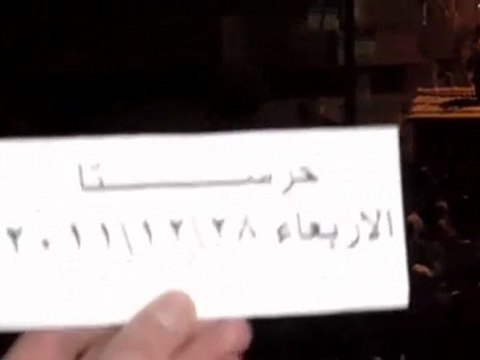 حرستا
الاربعاء ٢٨\١٢\٢٠١١